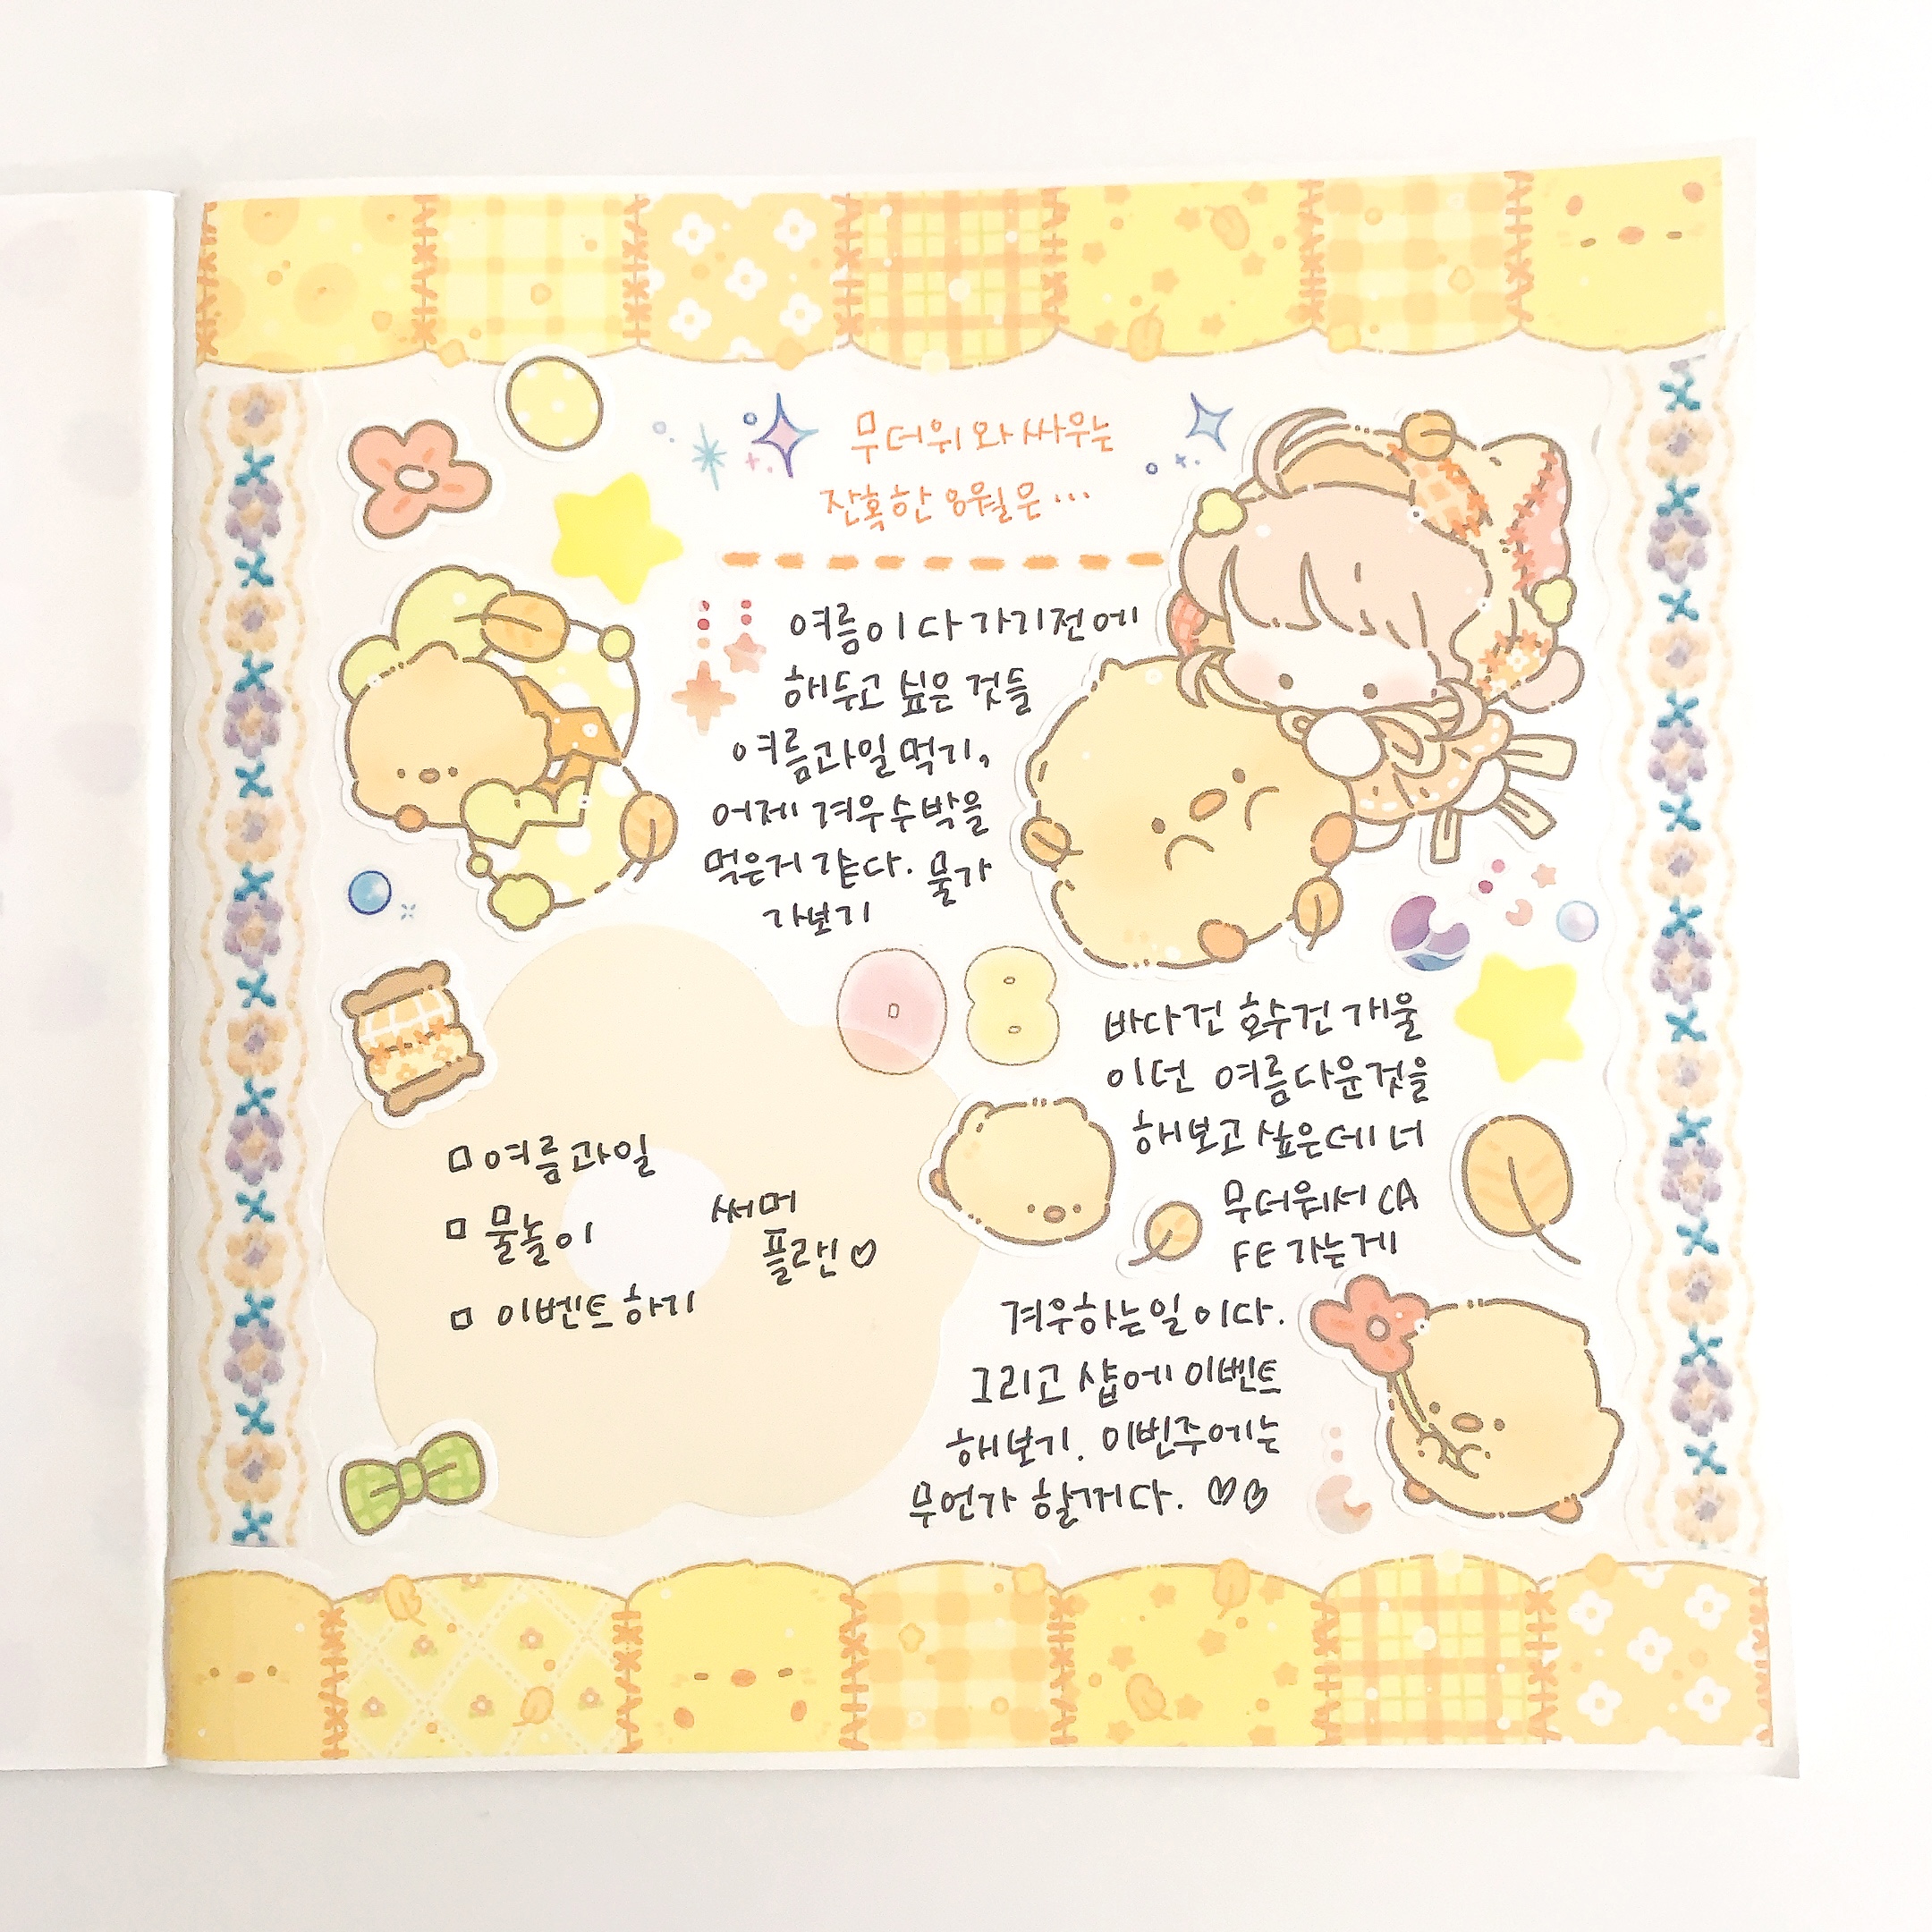 무더위와 싸우는
잔혹한 8월은...
여름이 다 가기전에
해두고 싶은 것들
여름과일 먹기,
어제 겨우 수박을
먹은거 같다. 물가
가보기
08
바다건 호수건 개울
이던 여름다운것을
해보고 싶은데 너
무더워서 CA
FE 가는게
겨우하는일이다.
그리고 샵에 이벤트
해보기. 이번주에는
무언가 할꺼다. ♡♡
□ 여름과일
□ 물놀이
□ 이벤트하기
써머
플랜♡